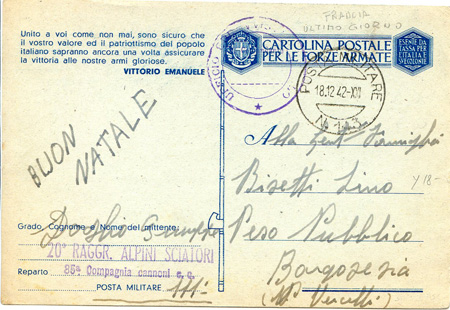 Unito a voi come non mai, sono sicuro che
il vostro valore ed il patriottismo del popolo
italiano sapranno ancora una volta assicurare
la vittoria alle nostre armi gloriose.
VITTORIO EMANUELE
FRANCIA
ULTIMO GIORNO
CARTOLINA POSTALE
PER LE FORZE ARMATE
ESENTE DA
TASSA PER
L'ITALIA E
POSTA MILITARE
18.12.42-XXI
N. 143
BUON
NATALE
Alla
Bisetti Lino
Peso Pubblico
Borgosesia
(Vercelli)
Y18-
Grado, Cognome e Nome del mittente:
20° RAGGR. ALPINI SCIATORI
Reparto
85ª Compagnia cannoni c. c.
POSTA MILITARE